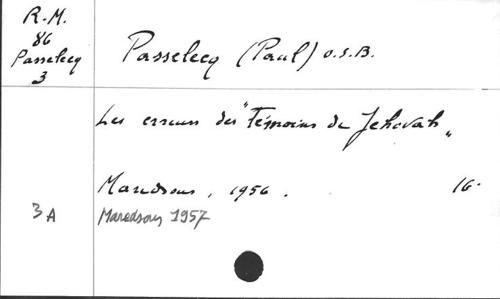 R.M.
86
Passelecq
3
Passelecq (Paul) O.S.B.
Les erreurs des "Témoins de Jehovah"
Maredsous, 1956. 16-
3A
Maredsous 1957